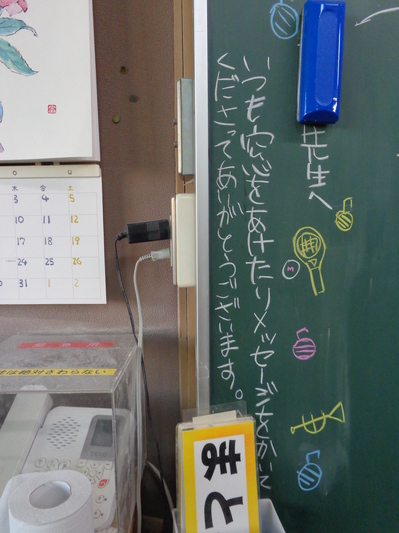 先生へ
いつも窓をあけたりメッセージをかいて
くださってありがとうございます。
木 金 土
3 4 5
10 11 12
17 18 19
24 25 26
31 1 2
は絶対さわらない
まと